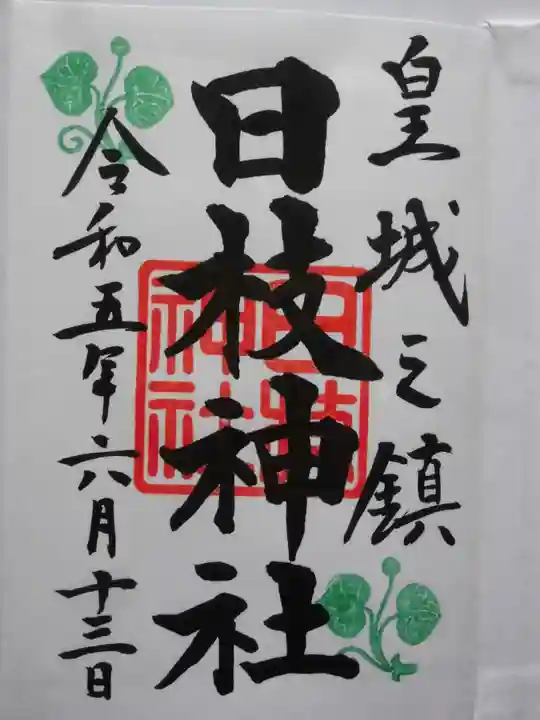 皇城之鎮
日枝神社
日枝神社
令和五年六月十三日